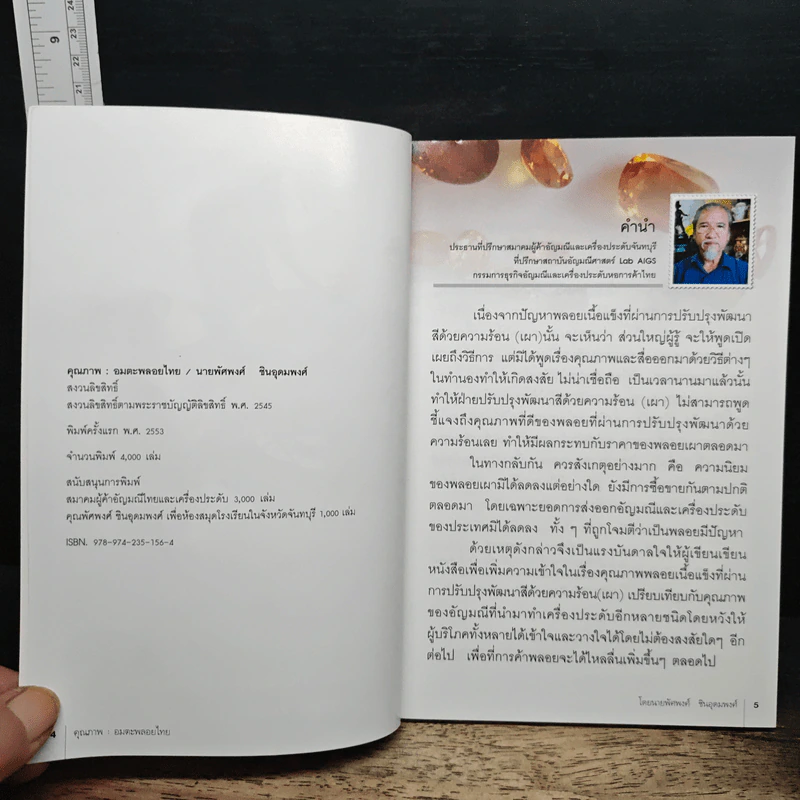 9
24
23
22
21
คุณภาพ : อมตะพลอยไทย / นายพัศพงศ์ ชินอุดมพงศ์
สงวนลิขสิทธิ์
สงวนลิขสิทธิ์ตามพระราชบัญญัติลิขสิทธิ์ พ.ศ. 2545
พิมพ์ครั้งแรก พ.ศ. 2553
จำนวนพิมพ์ 4,000 เล่ม
สนับสนุนการพิมพ์
สมาคมผู้ค้าอัญมณีไทยและเครื่องประดับ 3,000 เล่ม
คุณพัศพงศ์ ชินอุดมพงศ์ เพื่อห้องสมุดโรงเรียนในจังหวัดจันทบุรี 1,000 เล่ม
ISBN. 978-974-235-156-4
4 คุณภาพ : อมตะพลอยไทย
คำนำ
ประธานที่ปรึกษาสมาคมผู้ค้าอัญมณีและเครื่องประดับจันทบุรี
ที่ปรึกษาสถาบันอัญมณีศาสตร์ Lab AIGS
กรรมการธุรกิจอัญมณีและเครื่องประดับหอการค้าไทย
เนื่องจากปัญหาพลอยเนื้อแข็งที่ผ่านการปรับปรุงพัฒนา
สีด้วยความร้อน (เผา)นั้น จะเห็นว่า ส่วนใหญ่ผู้รู้ จะให้พูดเปิด
เผยถึงวิธีการ แต่มิได้พูดเรื่องคุณภาพและสื่อออกมาด้วยวิธีต่างๆ
ในทำนองทำให้เกิดสงสัย ไม่น่าเชื่อถือ เป็นเวลานานมาแล้วนั้น
ทำให้ฝ่ายปรับปรุงพัฒนาสีด้วยความร้อน (เผา) ไม่สามารถพูด
ชี้แจงถึงคุณภาพที่ดีของพลอยที่ผ่านการปรับปรุงพัฒนาด้วย
ความร้อนเลย ทำให้มีผลกระทบกับราคาของพลอยเผาตลอดมา
ในทางกลับกัน ควรสังเกตุอย่างมาก คือ ความนิยม
ของพลอยเผามิได้ลดลงแต่อย่างใด ยังมีการซื้อขายกันตามปกติ
ตลอดมา โดยเฉพาะยอดการส่งออกอัญมณีและเครื่องประดับ
ของประเทศมิได้ลดลง ทั้ง ๆ ที่ถูกโจมตีว่าเป็นพลอยมีปัญหา
ด้วยเหตุดังกล่าวจึงเป็นแรงบันดาลใจให้ผู้เขียนเขียน
หนังสือเพื่อเพิ่มความเข้าใจในเรื่องคุณภาพพลอยเนื้อแข็งที่ผ่าน
การปรับปรุงพัฒนาสีด้วยความร้อน(เผา) เปรียบเทียบกับคุณภาพ
ของอัญมณีที่นำมาทำเครื่องประดับอีกหลายชนิดโดยหวังให้
ผู้บริโภคทั้งหลายได้เข้าใจและวางใจได้โดยไม่ต้องสงสัยใดๆ อีก
ต่อไป เพื่อที่การค้าพลอยจะได้ไหลลื่นเพิ่มขึ้นๆ ตลอดไป
โดยนายพัศพงศ์ ชินอุดมพงศ์ 5